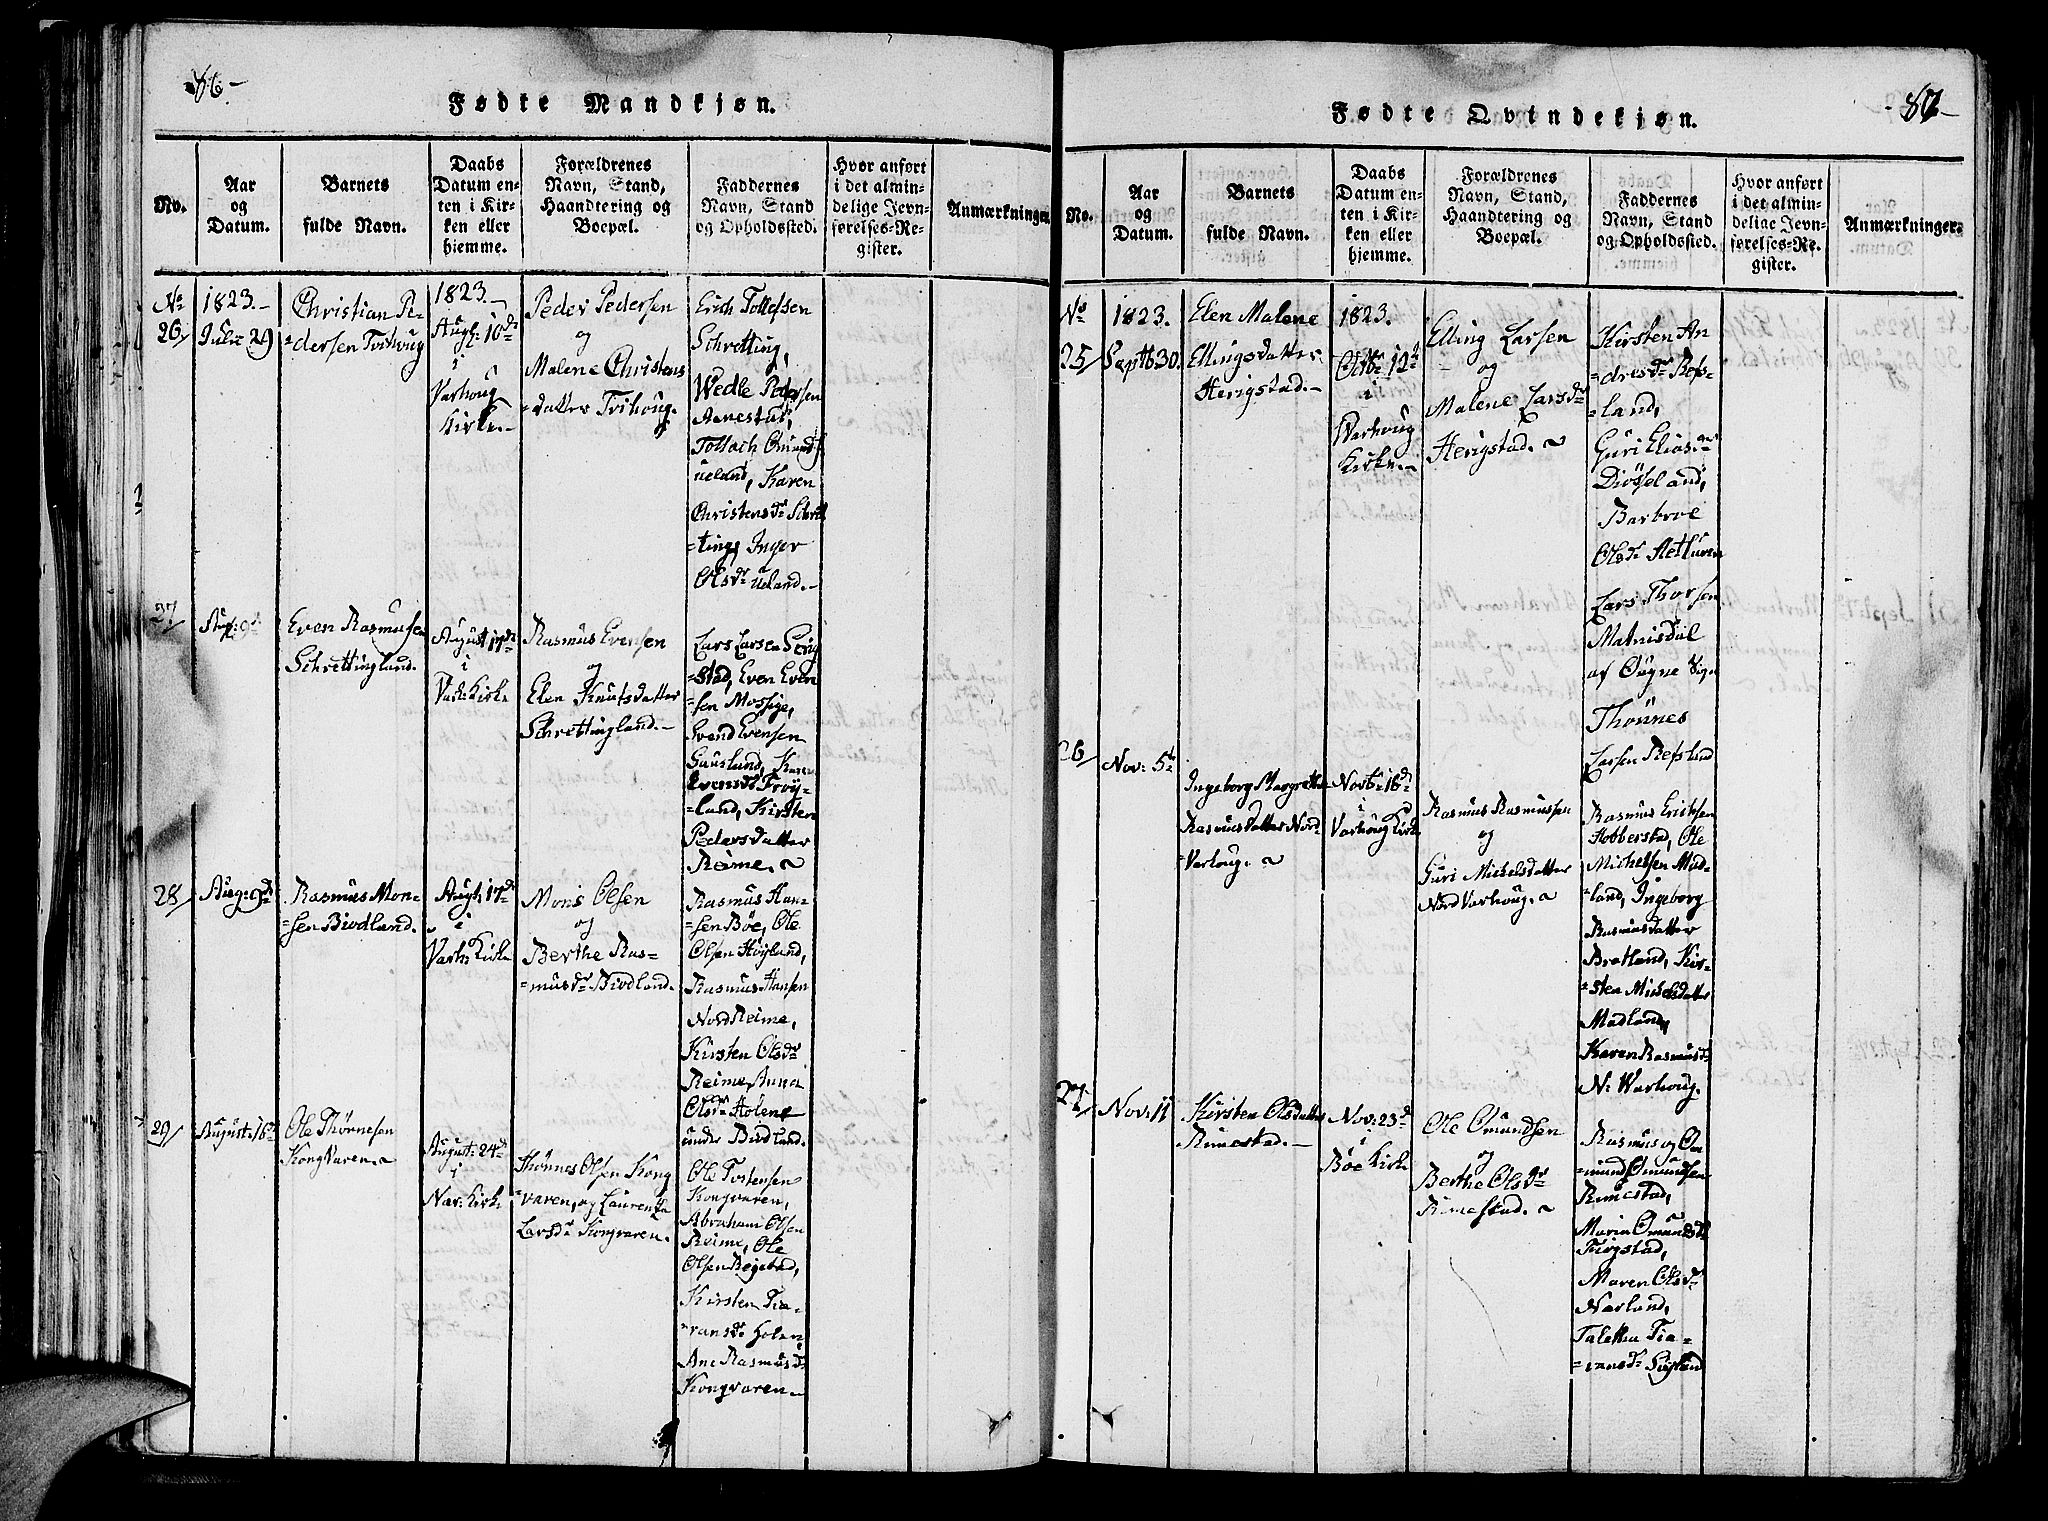 86.-
Fødte Mandkjøn.
No.
Aar
og
Datum.
Barnets
fulde Navn.
Daabs
Datum en-
ten i Kir-
ken eller
hjemme.
Forældrenes
Navn, Stand,
Haandtering og
Boepæl.
Faddernes
Navn, Stand
og Opholdssted.
Hvor anført
i det almin-
delige Jevn-
førelses-Re-
gister.
Anmærkninger.
No
26/
1823.-
Julii 29
Christian Pe-
=dersen Tvihoug
1823.-
Augt: 10de
i
Varhoug
Kirke.-
Peder Pedersen
og
Malene Christens
=datter Tvihoug.
Erich Tollefsen
Schretting,
Wedle Pedersen
Aanestad,
Tollach Omunds
ueland, Karen
Christensdr Schret
=ting, Inger
Olsdr Ueland.-
27/
Aug: 9de
Even Rasmusen
Schrettingland.
August 17de
i
Varh: Kirke
Rasmus Evensen
og
Elen Knutsdatter
Schrettingland.-
Lars Larsen Serig
=stad, Even Even
=sen Mossige,
Evend Evensen
Gauslund, Karen
Evensdr Frøy-
=land, Kirsten
Pedersdatter
Reime.
28/
Aug: 9de
Rasmus Mon-
=sen Birdland.
Augt: 17de
i
Varh: Kirke
Mons Olsen
og
Berthe Ras-
=musdr Birdland.
Rasmus Han-
=sen Bøe, Ole
Olsen Høyland,
Rasmus Hansen
Nord Reime,
Kirsten Olsdr
Reime, Anna
Olsdr Holene
under Birdland.
29/
August: 16de
Ole Thørnesen
Kongvaren.
August: 24de
i
Nar: Kirke
Thønnes Olsen Kong
=varen, og Laurentza
Larsdr Kongvaren.
Ole Tostensen
Kongvaren,
Abraham Olsen
Reime, Ole
Olsen Reigstad,
Kirsten Tia-
=ransdr Holen
Ane Rasmusdr
Kongvaren.-
-87-
Fødte Qvindekjøn.
No.
Aar
og
Datum.
Barnets
fulde Navn.
Daabs
Datum en-
ten i Kir-
ken eller
hjemme.
Forældrenes
Navn, Stand,
Haandtering og
Boepæl.
Faddernes
Navn, Stand
og Opholdssted.
Hvor anført
i det almin-
delige Jevn-
førelses-Re-
gister.
Anmærkninger.
No
25/
1823.
Septb 30.
Elen Malene
Ellingsdatter
Herigstad.-
1823.
Octbr 12de
i
Warhoug
Kirke.-
Elling Larsen
og
Malene Larsdr
Herigstad.
Kirsten An
=dresdr Refs-
=land,
Guri Eliasdr
Diøsseland,
Barbroe
Olsdr Aetturen
Lars Thorsen
Matnisdal
af Øugne Sogn
Thønnes
Larsen Refsland
26/
Nov: 5te
Ingeborg Margrethe
Rasmusdatter Nord
=Varhoug.
Novbr 16de
i
Varhoug Kirke
Rasmus Rasmussen
og
Guri Michelsdatter
Nord Varhoug.
Rasmus Ericksen
Hobberstad, Ole
Michelsen Mad-
=land, Ingeborg
Rasmusdatter
Bratland, Kir-
=sten Mikelsdatter
Madland,
Karen Rasmusdr
N: Warhoug.
27/
Nov: 11
Kirsten Olsdatter
Rimestad.-
Nov: 23de
i
Bøe Kirke
Ole Omundsen
og
Berthe Olsdr
Rimestad.
Rasmus og Om
=mund Omundsen
Rimestad,
Maria Omundsdr
Tiøgstad,
Maren Olsdr
Narland,
Taletha Tia-
=ransdr Søyland